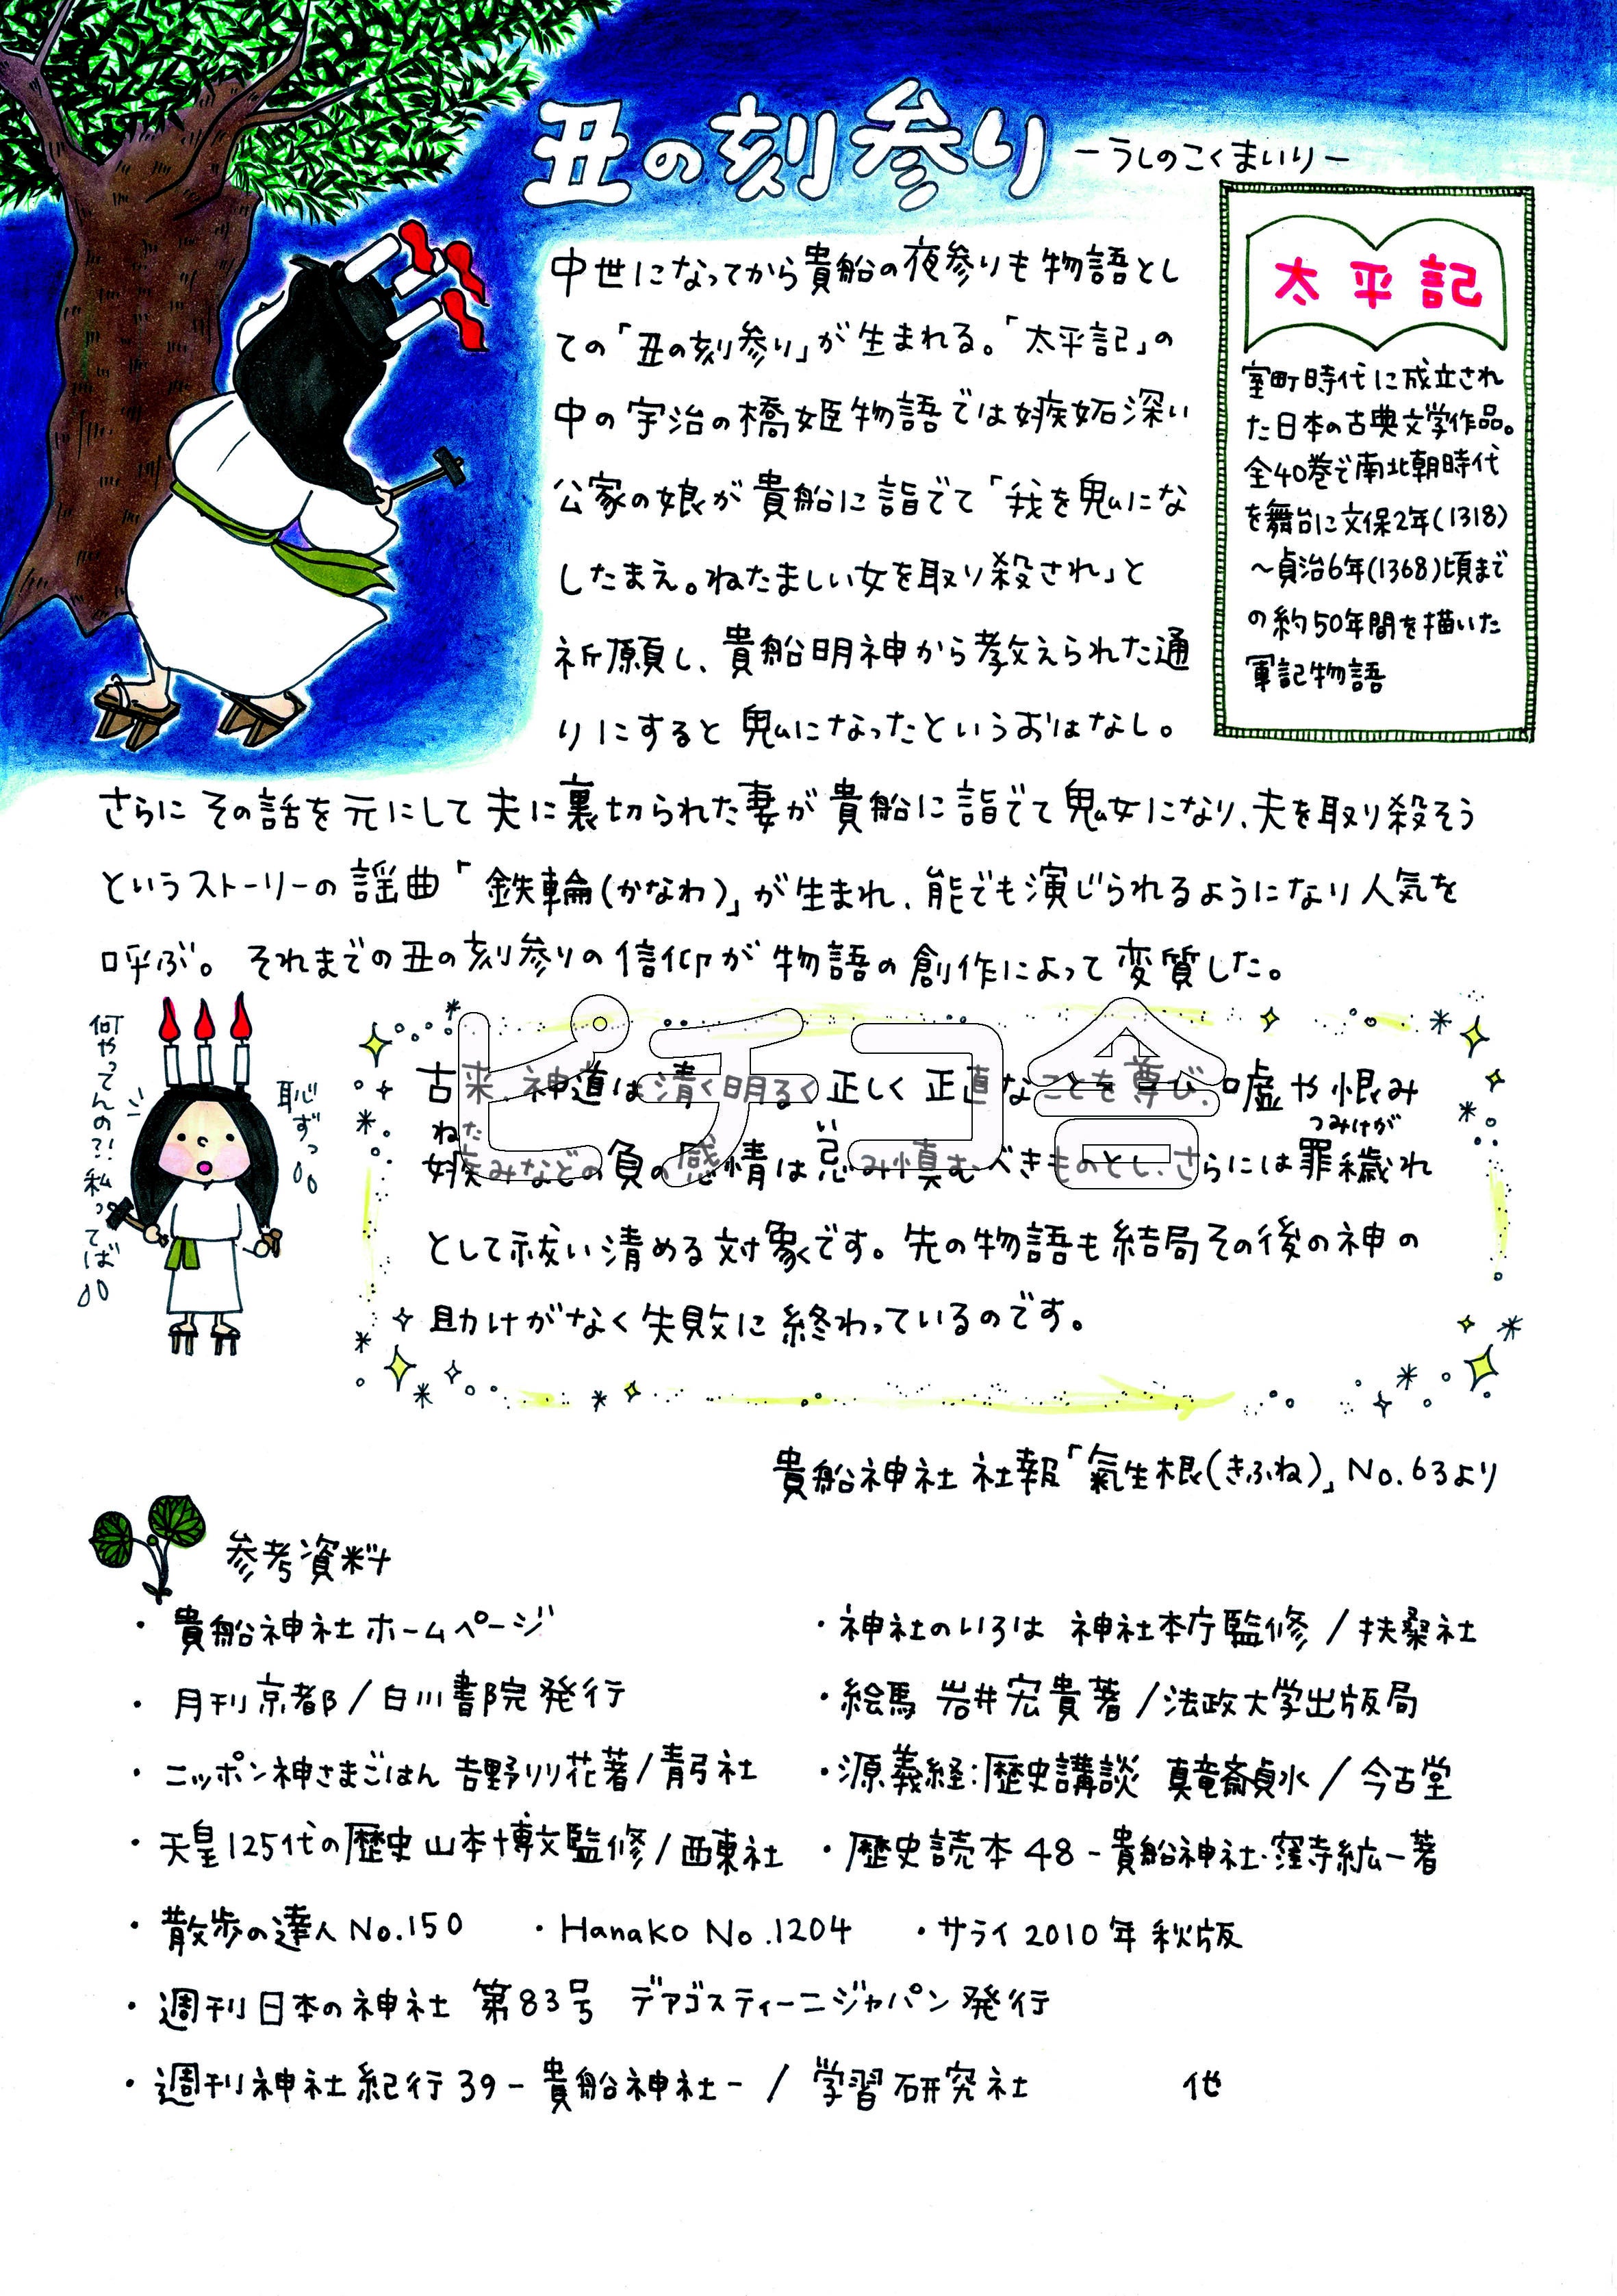 丑の刻参り
ーうしのこくまいりー
中世になってから貴船の夜参りも物語とし
ての「丑の刻参り」が生まれる。「太平記」の
中の宇治の橋姫物語では嫉妬深い
公家の娘が貴船に詣でて「我を鬼にな
したまえ。ねたましい女を取り殺され」と
祈願し、貴船明神から教えられた通
りにすると鬼になったというおはなし。
太平記
室町時代に成立され
た日本の古典文学作品。
全40巻で南北朝時代
を舞台に文保2年(1318)
～貞治6年(1368)頃まで
の約50年間を描いた
軍記物語
さらにその話を元にして夫に裏切られた妻が貴船に詣でて鬼女になり、夫を取り殺そう
というストーリーの謡曲「鉄輪(かなわ)」が生まれ、能でも演じられるようになり人気を
呼ぶ。それまでの丑の刻参りの信仰が物語の創作によって変質した。
何やってんの?!私ってば
恥ずっ
ピチコ舎
古来、神道は清く明るく正しく正直なことを尊び、嘘や恨み
ねた
い
つみけが
嫉みなどの負の感情は忌み慎むべきものとし、さらには罪穢れ
として祓い清める対象です。先の物語も結局その後の神の
助けがなく失敗に終わっているのです。
貴船神社 社報「氣生根(きふね)」No.63より
参考資料
・貴船神社ホームページ
・神社のいろは 神社本庁監修/扶桑社
・月刊京都/白川書院発行
・絵馬 岩井宏實著/法政大学出版局
・ニッポン神さまごはん 吉野りり花著/青弓社
・源義経:歴史講談 真竜斎貞水/今古堂
・天皇125代の歴史 山本博文監修/西東社
・歴史読本48-貴船神社・窪寺紘一著
・散歩の達人No.150
・Hanako No.1204
・サライ2010年秋版
・週刊日本の神社 第83号 デアゴスティーニジャパン発行
・週刊神社紀行39-貴船神社-/学習研究社
他